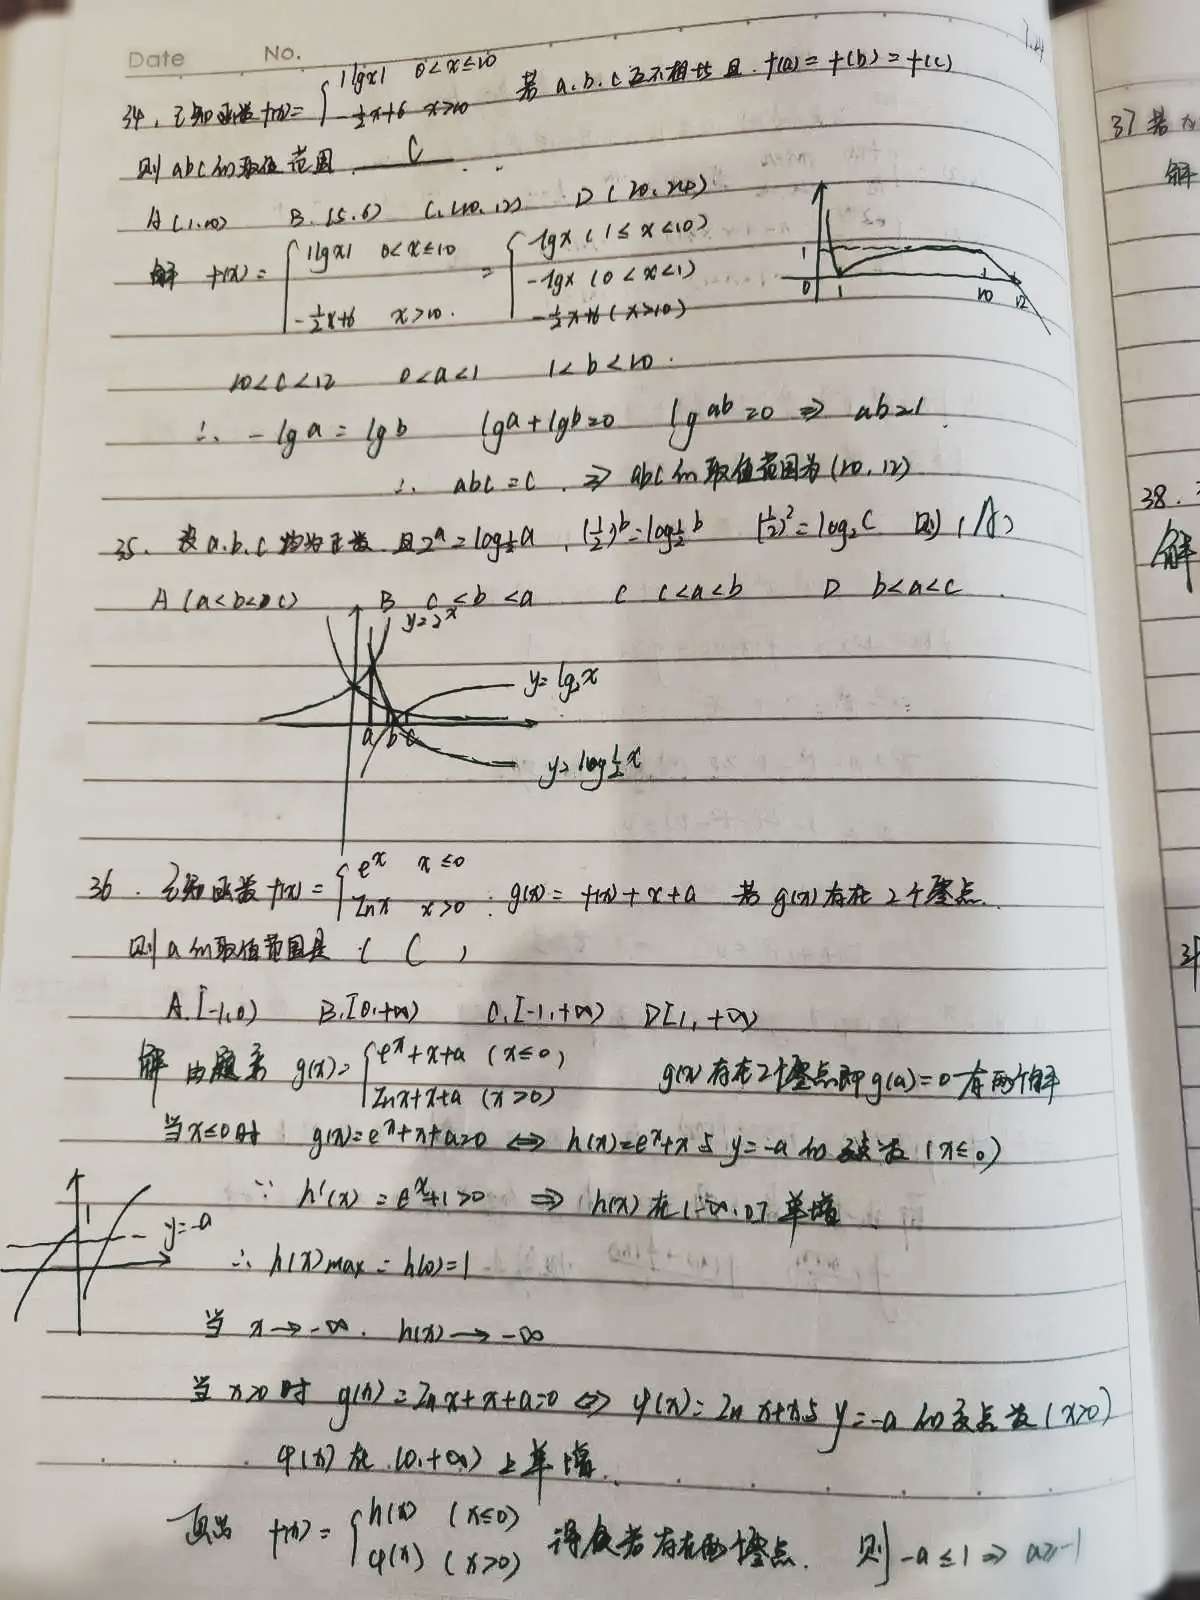 Date No.
34. 已知函数f(x)={|lgx| 0<x≤10
-½x+6 x>10 若a.b.c互不相等且f(a)=f(b)=f(c)
则abc的取值范围 C
A(1.10) B.(5.6) C.(10.12) D(20.24)
解 f(x)={|lgx| 0<x≤10 ={lgx(1≤x≤10)
-lgx(0<x<1)
-½x+6 x>10. -½x+6(x>10)
1 0 1 10 12
10<c<12 0<a<1 1<b<10.
∴ -lga=lgb lga+lgb=0 lgab=0 ⇒ ab=1
∴ abc=c ⇒ abc的取值范围为(10.12)
35. 设a.b.c均为正数 且2^a=log½a, (½)^b=log½b (½)^2=log₂C 则(A)
A(a<b<c) B c<b<a C c<a<b D b<a<c
y=2^x
y=lg₂x
a b c
y=log½x
36. 已知函数f(x)={e^x x≤0
lnx x>0 : g(x)=f(x)+x+a 若g(x)存在2个零点.
则a的取值范围是(C)
A.[-1,0) B.[0,+∞) C.[-1,+∞) D[1,+∞)
解 由题意 g(x)={e^x+x+a (x≤0)
lnx+x+a (x>0) g(x)存在2个零点即g(a)=0有两个解
当x≤0时 g(x)=e^x+x+a=0 ⇔ h(x)=e^x+x与y=-a的交点数(x≤0)
∵ h'(x)=e^x+1>0 ⇒ h(x)在(-∞.0]单增
1 y=-a
∴ h(x)max=h(0)=1
当x→-∞. h(x)→-∞
当x>0时 g(x)=lnx+x+a=0 ⇔ φ(x)=lnx+x与y=-a的交点数(x>0)
φ(x)在(0.+∞)上单增.
f(x)={h(x) (x≤0)
φ(x) (x>0) 存在两个零点. 则-a≤1 ⇒ a≥-1
37 若
解
38.
解